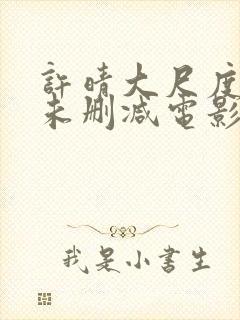 許晴大尺度
未删减電影
我是小書生